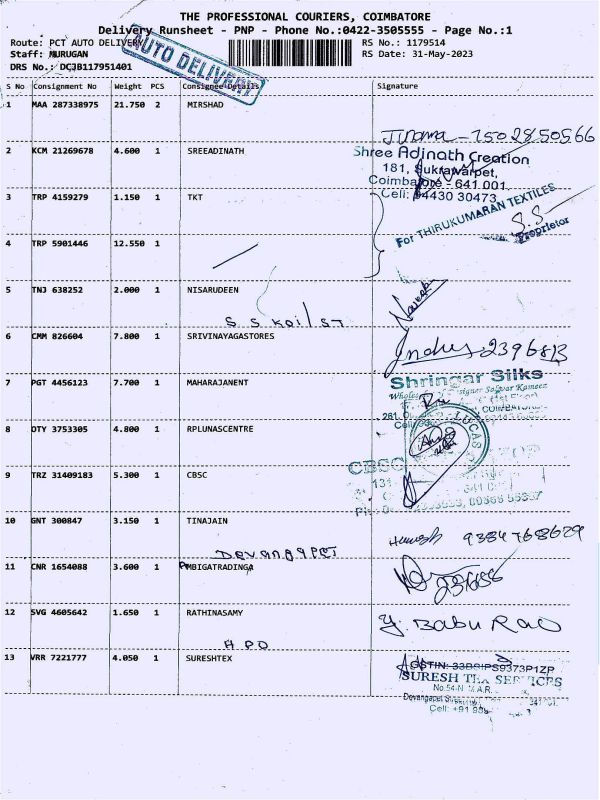 THE PROFESSIONAL COURIERS, COIMBATORE
Delivery Runsheet - PNP - Phone No.:0422-3505555 - Page No.:1
Route: PCT AUTO DELIVERY
RS No.: 1179514
Staff: MURUGAN
RS Date: 31-May-2023
DRS No.: DCJB117951401
AUTO DELIVERY
S No Consignment No Weight PCS Consignee Details Signature
1 MAA 287338975 21.750 2 MIRSHAD
2 KCM 21269678 4.600 1 SREEADINATH
Shree Adinath Creation
181, Sukrawarpet,
Coimbatore - 641 001.
Cell: 94430 30473
3 TRP 4159279 1.150 1 TKT
For THIRUKUMARAN TEXTILES
S.S
Proprietor
4 TRP 5901446 12.550 1
5 TNJ 638252 2.000 1 NISARUDEEN
6 CMM 826604 7.800 1 SRIVINAYAGASTORES
2396813
7 PGT 4456123 7.700 1 MAHARAJANENT
Shringar Silks
8 OTY 3753305 4.800 1 RPLUNASCENTRE
LUCAS
9 TRZ 31409183 5.300 1 CBSC
CBSC
131
10 GNT 300847 3.150 1 TINAJAIN
9384768629
Devangapet
11 CNR 1654088 3.600 1 AMBIGATRADINGA
12 SVG 4605642 1.650 1 RATHINASAMY
Y. Babu Rao
H P O
13 VRR 7221777 4.050 1 SURESHTEX
SURESH TEX SERVICES
Devangapet
Cell: +91